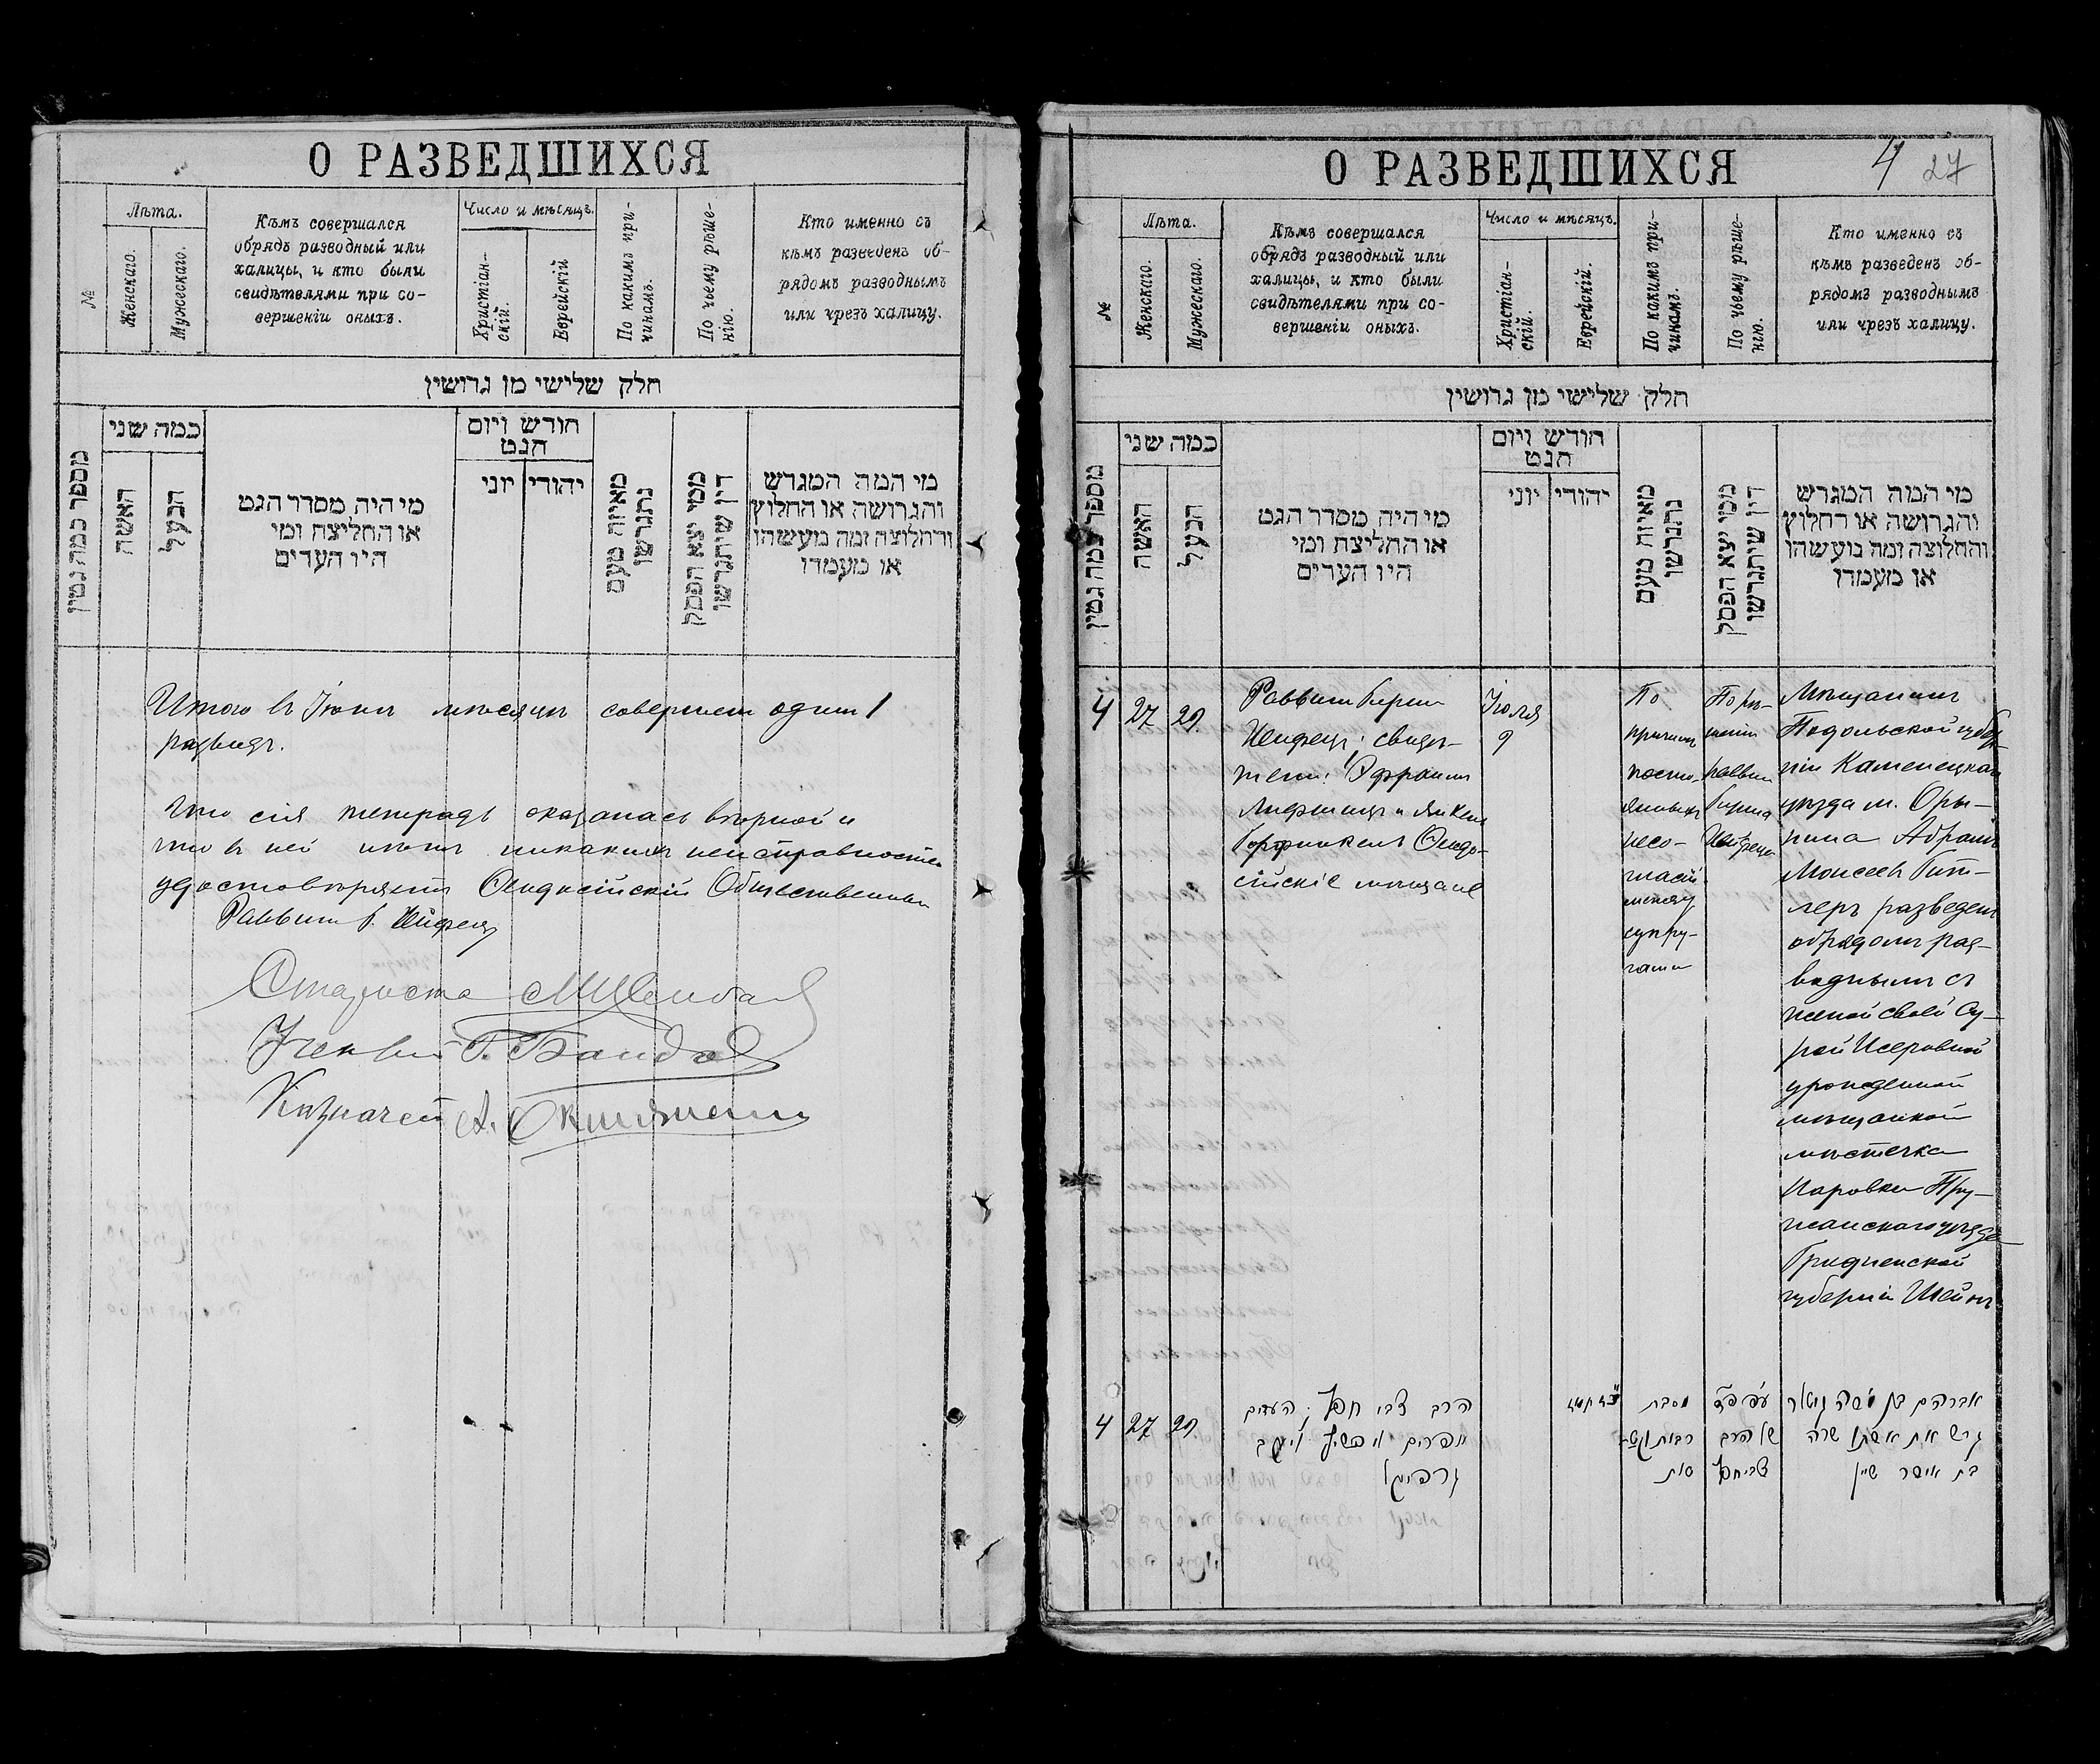 О РАЗВЕДШИХСЯ
№
Лѣта.
Женскаго.
Мужескаго.
Кѣмъ совершался
обрядъ разводный или
халицы, и кто были
свидѣтелями при со-
вершеніи оныхъ.
Число и мѣсяцъ.
Христіан-
скій.
Еврейскій
По какимъ при-
чинамъ.
По чьему рѣше-
нію.
Кто именно съ
кѣмъ разведенъ об-
рядомъ разводнымъ
или чрезъ халицу.
חלק שלישי מן גרושין
מספר כמה גטין
כמה שני
האשה
הבעל
מי היה מסדר הגט
או החליצה ומי
היו העדים
חודש ויום
הגט
יוני
יהודי
מאיזה טעם
נתגרשו
ממי יצא הפסק
דין שיתגרשו
מי המה המגרש
והגרושה או החלוץ
והחלוצה ומה מעשהו
או מעמדו
Итого въ Іюнѣ мѣсяцѣ совершенъ одинъ 1
разводъ.
Что сія тетрадь оказалась вѣрной и
что въ ней нѣтъ никакихъ неисправностей
удостовѣряетъ Ѳеодосійскій Общественный
Раввинъ Б. Хейфецъ
Староста
Ученый Г.
Казначей А.
О РАЗВЕДШИХСЯ
4 27
№
Лѣта.
Женскаго.
Мужескаго.
Кѣмъ совершался
обрядъ разводный или
халицы, и кто были
свидѣтелями при со-
вершеніи оныхъ.
Число и мѣсяцъ.
Христіан-
скій.
Еврейскій.
По какимъ при-
чинамъ.
По чьему рѣше-
нію.
Кто именно съ
кѣмъ разведенъ об-
рядомъ разводнымъ
или чрезъ халицу.
חלק שלישי מן גרושין
מספר כמה גטין
כמה שני
האשה
הבעל
מי היה מסדר הגט
או החליצה ומי
היו העדים
חודש ויום
הגט
יוני
יהודי
מאיזה טעם
נתגרשו
ממי יצא הפסק
דין שיתגרשו
מי המה המגרש
והגרושה או החלוץ
והחלוצה ומה מעשהו
או מעמדו
4 27 29.
Раввинъ Бергъ
Хейфецъ; свидѣ-
тели: Эфраимъ
Лифшицъ и Янкель
Горфинкель Ѳеодо-
сійскіе мѣщане
Іюля
9
По
причинѣ
посто-
янныхъ
несо-
гласій
между
супру-
гами
По рѣ-
шенію
раввина
Хейфеца
Мѣщанинъ
Подольской губер-
ніи Каменецкаго
уѣзда м. Оры-
нина Абрамъ
Моисеевъ Гит-
леръ разведенъ
обрядомъ раз-
воднымъ съ
женой своей Су-
рой Исеровной
урожденной
мѣщанкой
мѣстечка
Наровки Пру-
жанскаго уѣзда
Гродненской
губерніи Шейнъ
4 27 29.
הרב צבי חפץ; העדים
אפרים ליפשיץ ויעקב
גרפינקל
מסבת
רבות וקט-
טות
עפ״י פ״ד
של הרב
צבי חפץ
אברהם בן משה גיטלר
גרש את אשתו שרה
בת איסר שיין